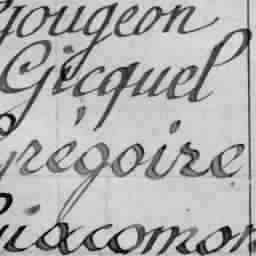 Gougeon
Gicquel
Grégoire
Giacomon